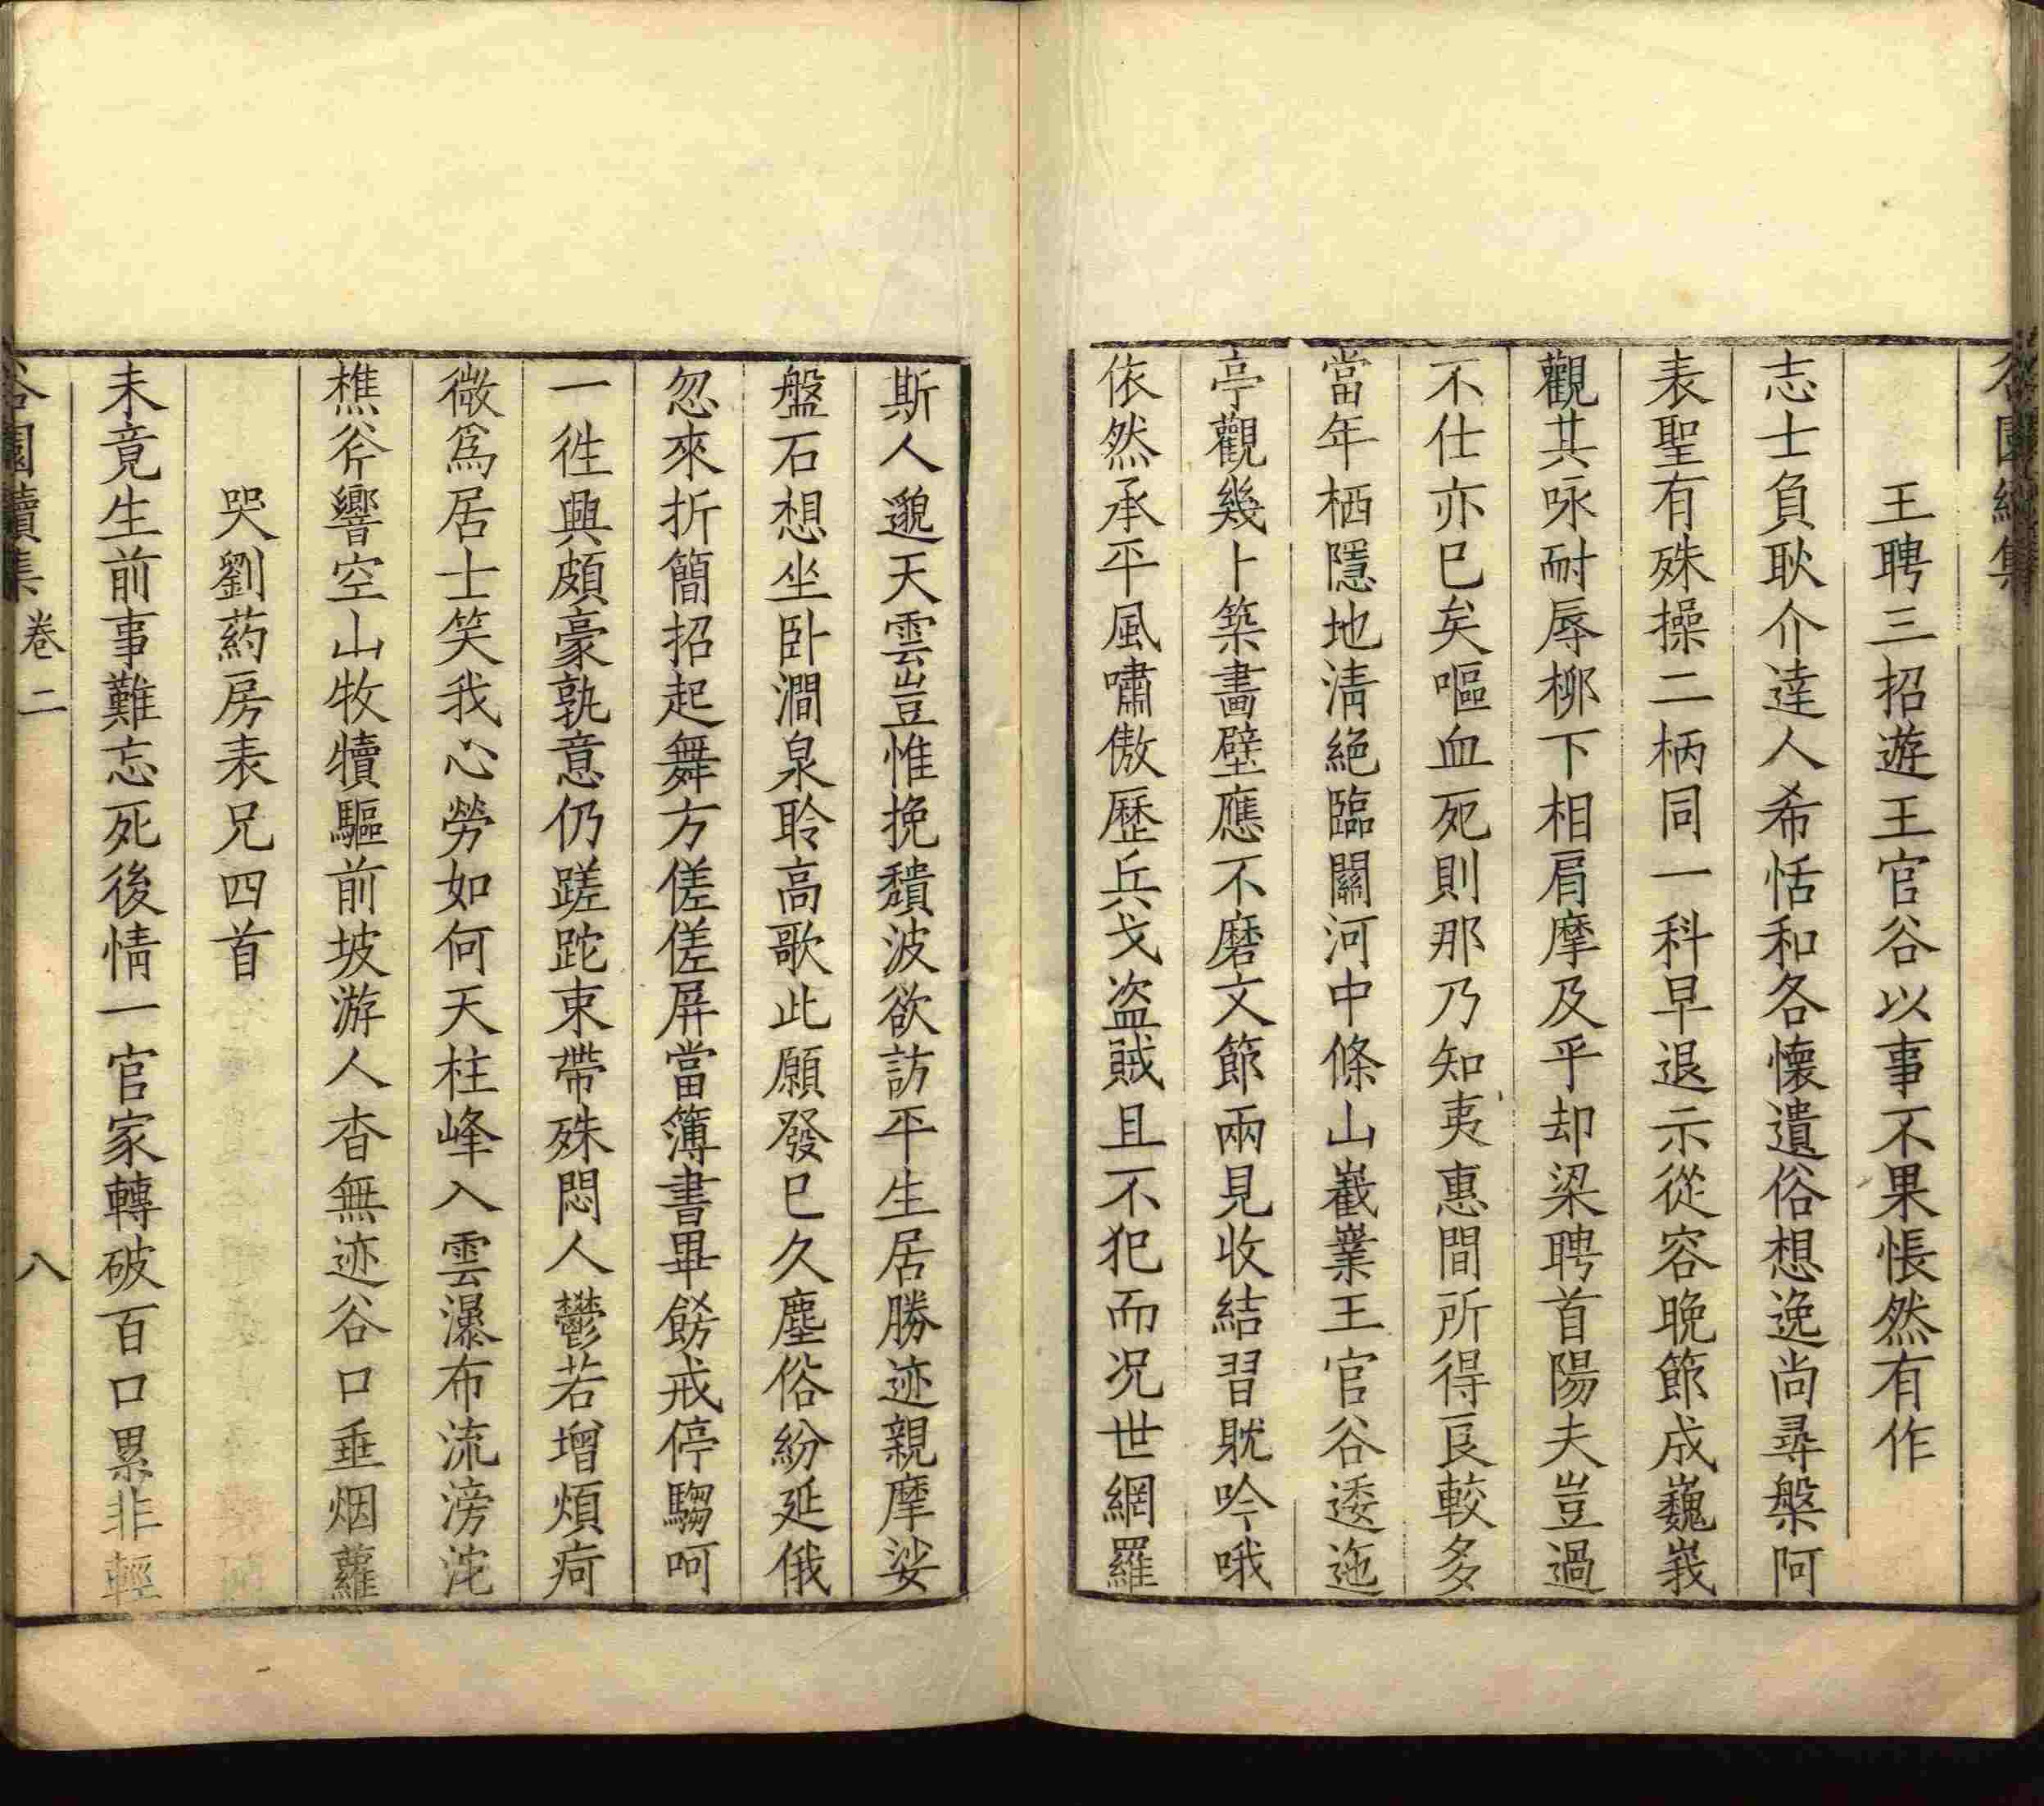 王聘三招遊王官谷以事不果悵然有作
志士負耿介達人希恬和各懷遺俗想逸尚尋槃阿
表聖有殊操二柄同一科早退示從容晚節成巍峩
觀其咏耐辱柳下相肩摩及乎却梁聘首陽夫豈過
不仕亦已矣嘔血死則那乃知夷惠間所得良較多
當年栖隱地淸絕臨關河中條山嶻嶪王官谷逶迤
亭觀幾卜築畵壁應不磨文節兩見收結習躭吟哦
依然承平風嘯傲歷兵戈盜賊且不犯而况世網羅
斯人邈天雲豈惟挽穨波欲訪平生居勝迹親摩娑
盤石想坐卧澗泉聆高歌此願發已久塵俗紛延俄
忽來折簡招起舞方傞傞屏當簿書畢餝戒停騶呵
一徃興頗豪孰意仍蹉跎束帶殊悶人鬱若增煩疴
微爲居士笑我心勞如何天柱峰入雲瀑布流滂沱
樵斧響空山牧犢驅前坡游人杳無迹谷口垂烟蘿
哭劉葯房表兄四首
未竟生前事難忘死後情一官家轉破百口累非輕
園續集 卷二 八